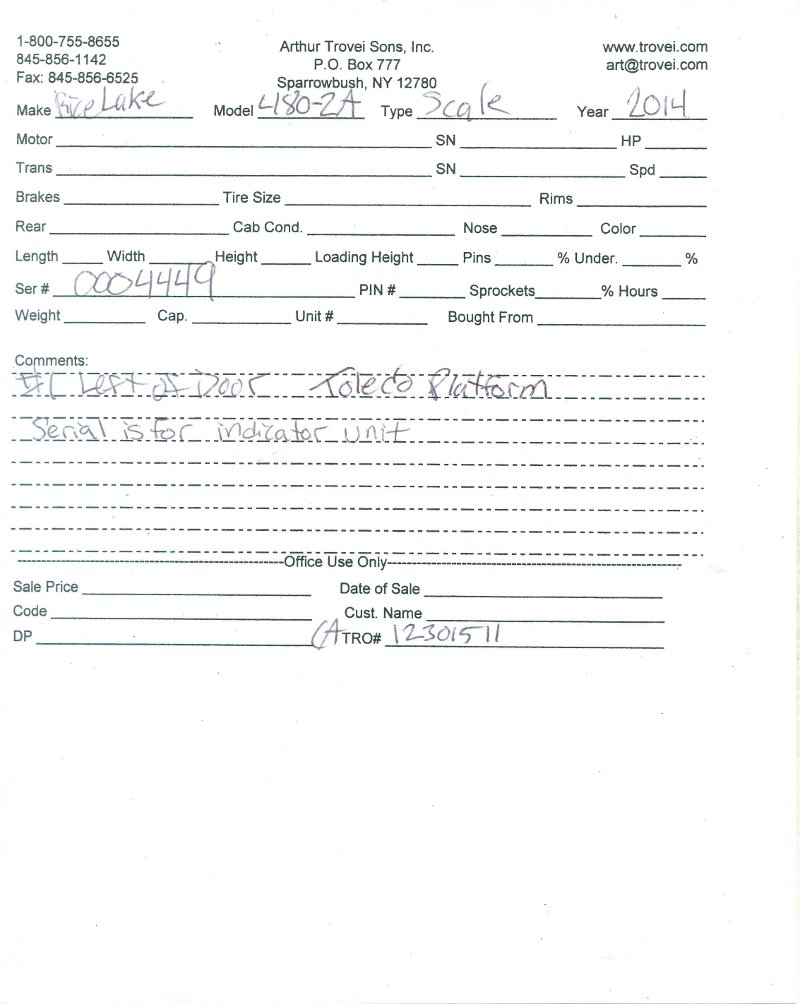 1-800-755-8655
845-856-1142
Fax: 845-856-6525
Arthur Trovei Sons, Inc.
P.O. Box 777
Sparrowbush, NY 12780
www.trovei.com
art@trovei.com
Make Rice Lake Model 480-2A Type Scale Year 2014
Motor SN HP
Trans SN Spd
Brakes Tire Size Rims
Rear Cab Cond. Nose Color
Length Width Height Loading Height Pins % Under. %
Ser # 0004449 PIN # Sprockets % Hours
Weight Cap. Unit # Bought From
Comments:
#1 Left of Door Toledo Platform
Serial is for indicator unit
Office Use Only
Sale Price Date of Sale
Code Cust. Name
DP CATRO# 12301511